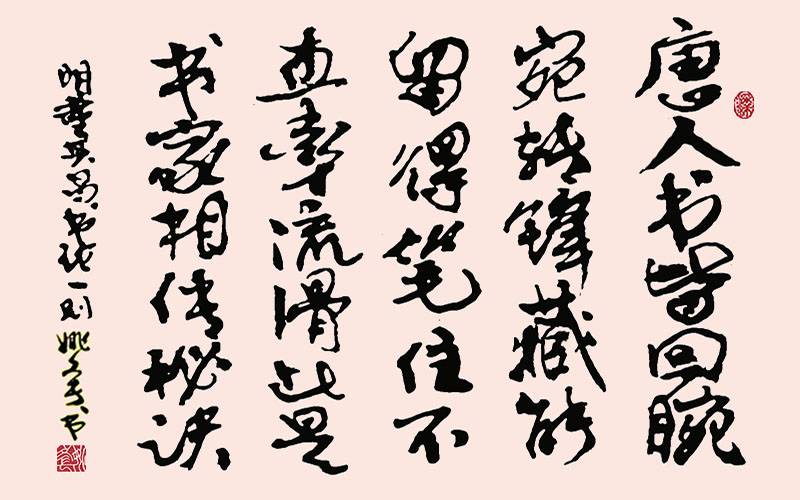 唐人书皆回腕
宛转锋藏能
留得笔住不
直率流滑此是
书家相传秘诀
明董其昌书论一则 姚书